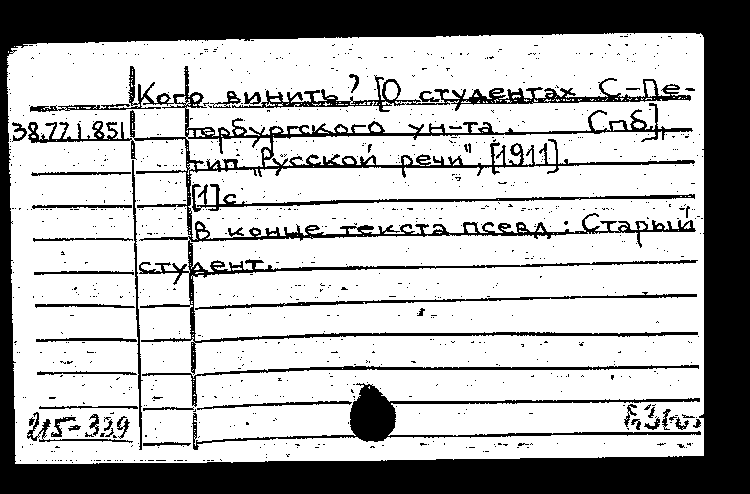 Кого винить? [О студентах С-Пе-
38.77.1.851 тербургского ун-та. Спб],
тип „Русской речи", [1911].
[1]с.
В конце текста псевд: Старый
студент.
215-339